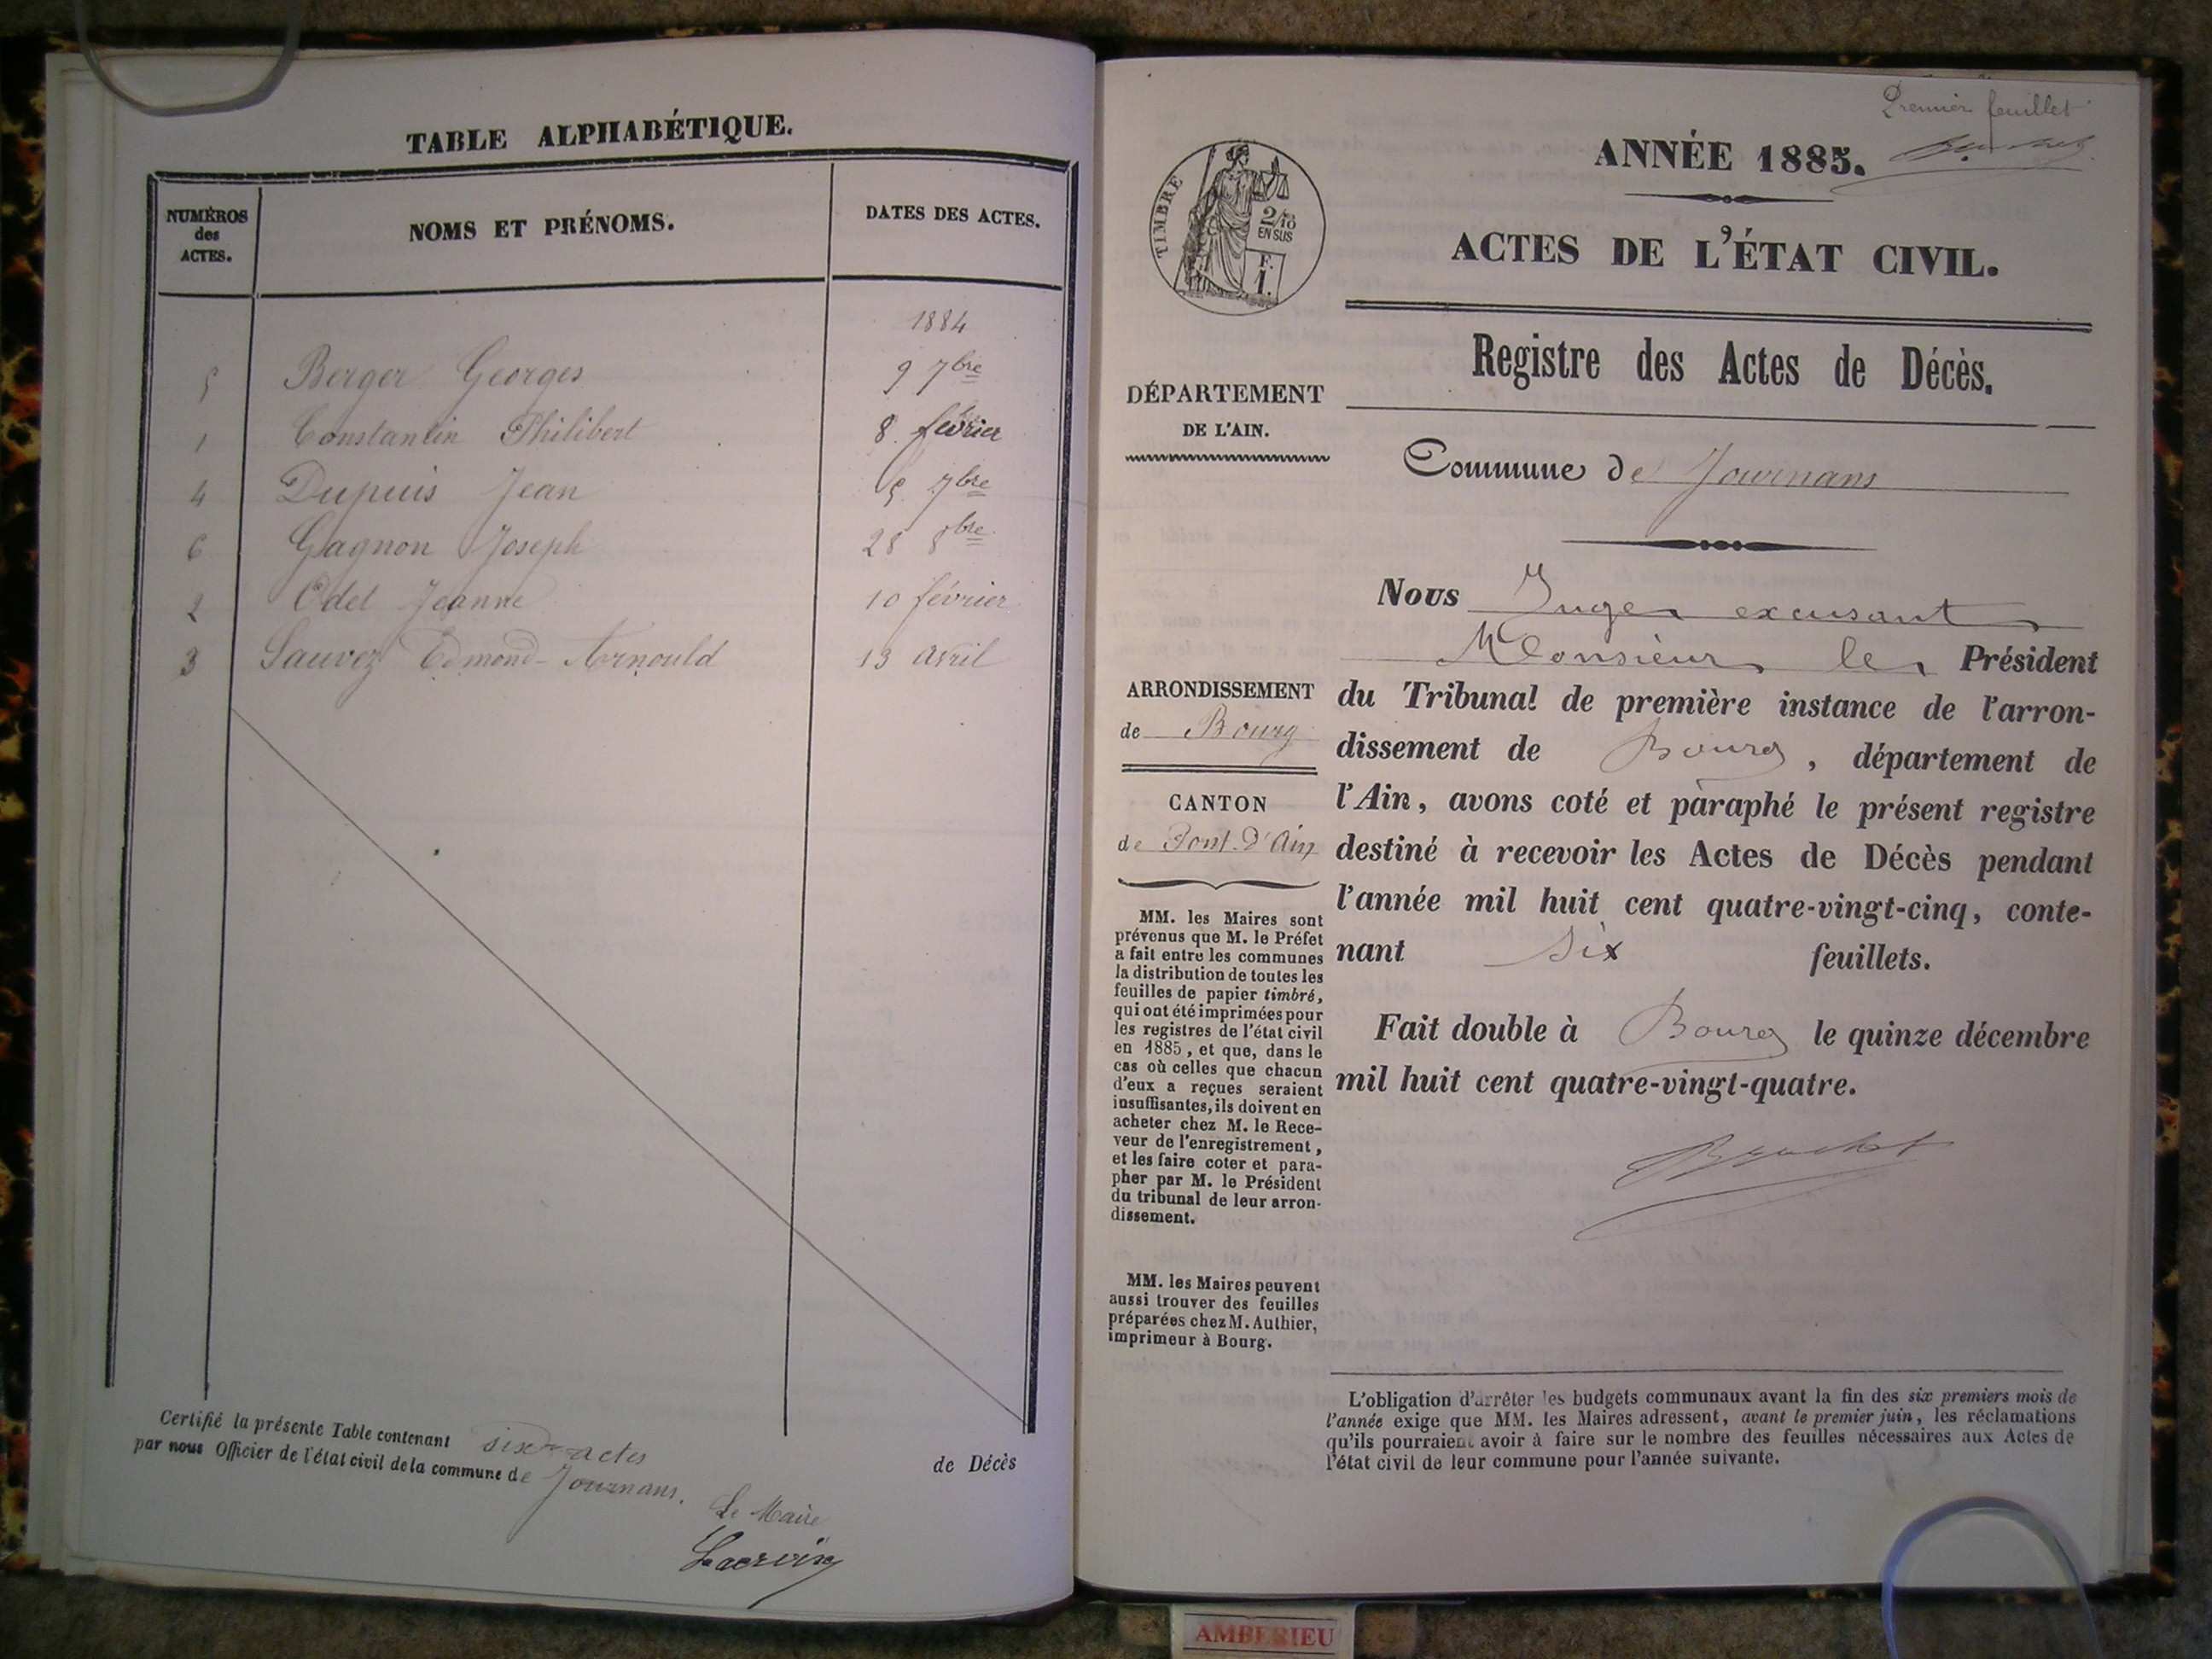 TABLE ALPHABÉTIQUE.
NUMÉROS
des
ACTES.
NOMS ET PRÉNOMS.
DATES DES ACTES.
1884
5 Berger Georges 9 7bre
1 Constantin Philibert 8 février
4 Dupuis Jean 5 7bre
6 Gagnon Joseph 28 8bre
2 Odet Jeanne 10 février
3 Sauvez Edmond-Arnould 13 avril
Certifié la présente Table contenant six actes de Décès
par nous Officier de l'état civil de la commune de Journans.
Le Maire
Lacroix
Premier feuillet
ANNÉE 1885.
TIMBRE
2/10
EN SUS
F.
1.
ACTES DE L'ÉTAT CIVIL.
Registre des Actes de Décès.
DÉPARTEMENT
DE L'AIN.
Commune de Journans
ARRONDISSEMENT
de Bourg
CANTON
de Pont-d'Ain
MM. les Maires sont
prévenus que M. le Préfet
a fait entre les communes
la distribution de toutes les
feuilles de papier timbré,
qui ont été imprimées pour
les registres de l'état civil
en 1885, et que, dans le
cas où celles que chacun
d'eux a reçues seraient
insuffisantes, ils doivent en
acheter chez M. le Rece-
veur de l'enregistrement,
et les faire coter et para-
pher par M. le Président
du tribunal de leur arron-
dissement.
MM. les Maires peuvent
aussi trouver des feuilles
préparées chez M. Authier,
imprimeur à Bourg.
Nous Juge excusant
Monsieur le Président
du Tribunal de première instance de l'arron-
dissement de Bourg, département de
l'Ain, avons coté et paraphé le présent registre
destiné à recevoir les Actes de Décès pendant
l'année mil huit cent quatre-vingt-cinq, conte-
nant six feuillets.
Fait double à Bourg le quinze décembre
mil huit cent quatre-vingt-quatre.
L'obligation d'arrêter les budgets communaux avant la fin des six premiers mois de
l'année exige que MM. les Maires adressent, avant le premier juin, les réclamations
qu'ils pourraient avoir à faire sur le nombre des feuilles nécessaires aux Actes de
l'état civil de leur commune pour l'année suivante.
AMBERIEU